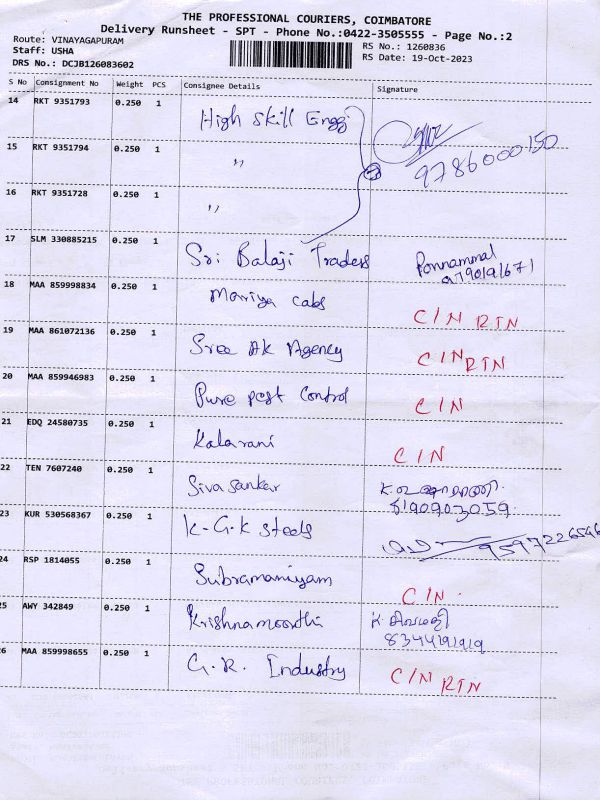 THE PROFESSIONAL COURIERS, COIMBATORE
Delivery Runsheet - SPT - Phone No.:0422-3505555 - Page No.:2
Route: VINAYAGAPURAM
Staff: USHA
DRS No.: DCJB126083602
RS No.: 1260836
RS Date: 19-Oct-2023
S No Consignment No Weight PCS Consignee Details Signature
14 RKT 9351793 0.250 1 High Skill Engg
9786000150
15 RKT 9351794 0.250 1 ,,
16 RKT 9351728 0.250 1 ,,
17 SLM 330885215 0.250 1 Sri Balaji Traders Ponnammal
9790191671
18 MAA 859998834 0.250 1 Moniya cabs C/N RTN
19 MAA 861072136 0.250 1 Sree AK Agency C/N RTN
20 MAA 859946983 0.250 1 Pure pest control C/N
21 EDQ 24580735 0.250 1 Kalarani C/N
22 TEN 7607240 0.250 1 Sivasankar
8190903059
23 KUR 530568367 0.250 1 K.G.K steels 9597226546
24 RSP 1814055 0.250 1 Subramaniyam C/N.
25 AWY 342849 0.250 1 Krishnamoorthi
8344191919
26 MAA 859998655 0.250 1 G.R. Industry C/N RTN